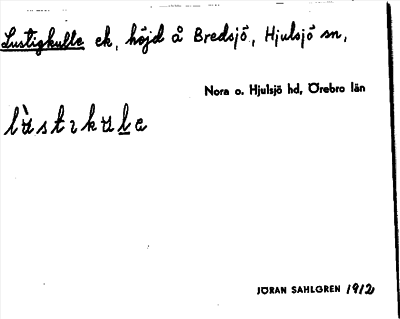 Lustigkulle ek, höjd å Bredsjö, Hjulsjö sn,
Nora o. Hjulsjö hd, Örebro län
JÖRAN SAHLGREN 1912